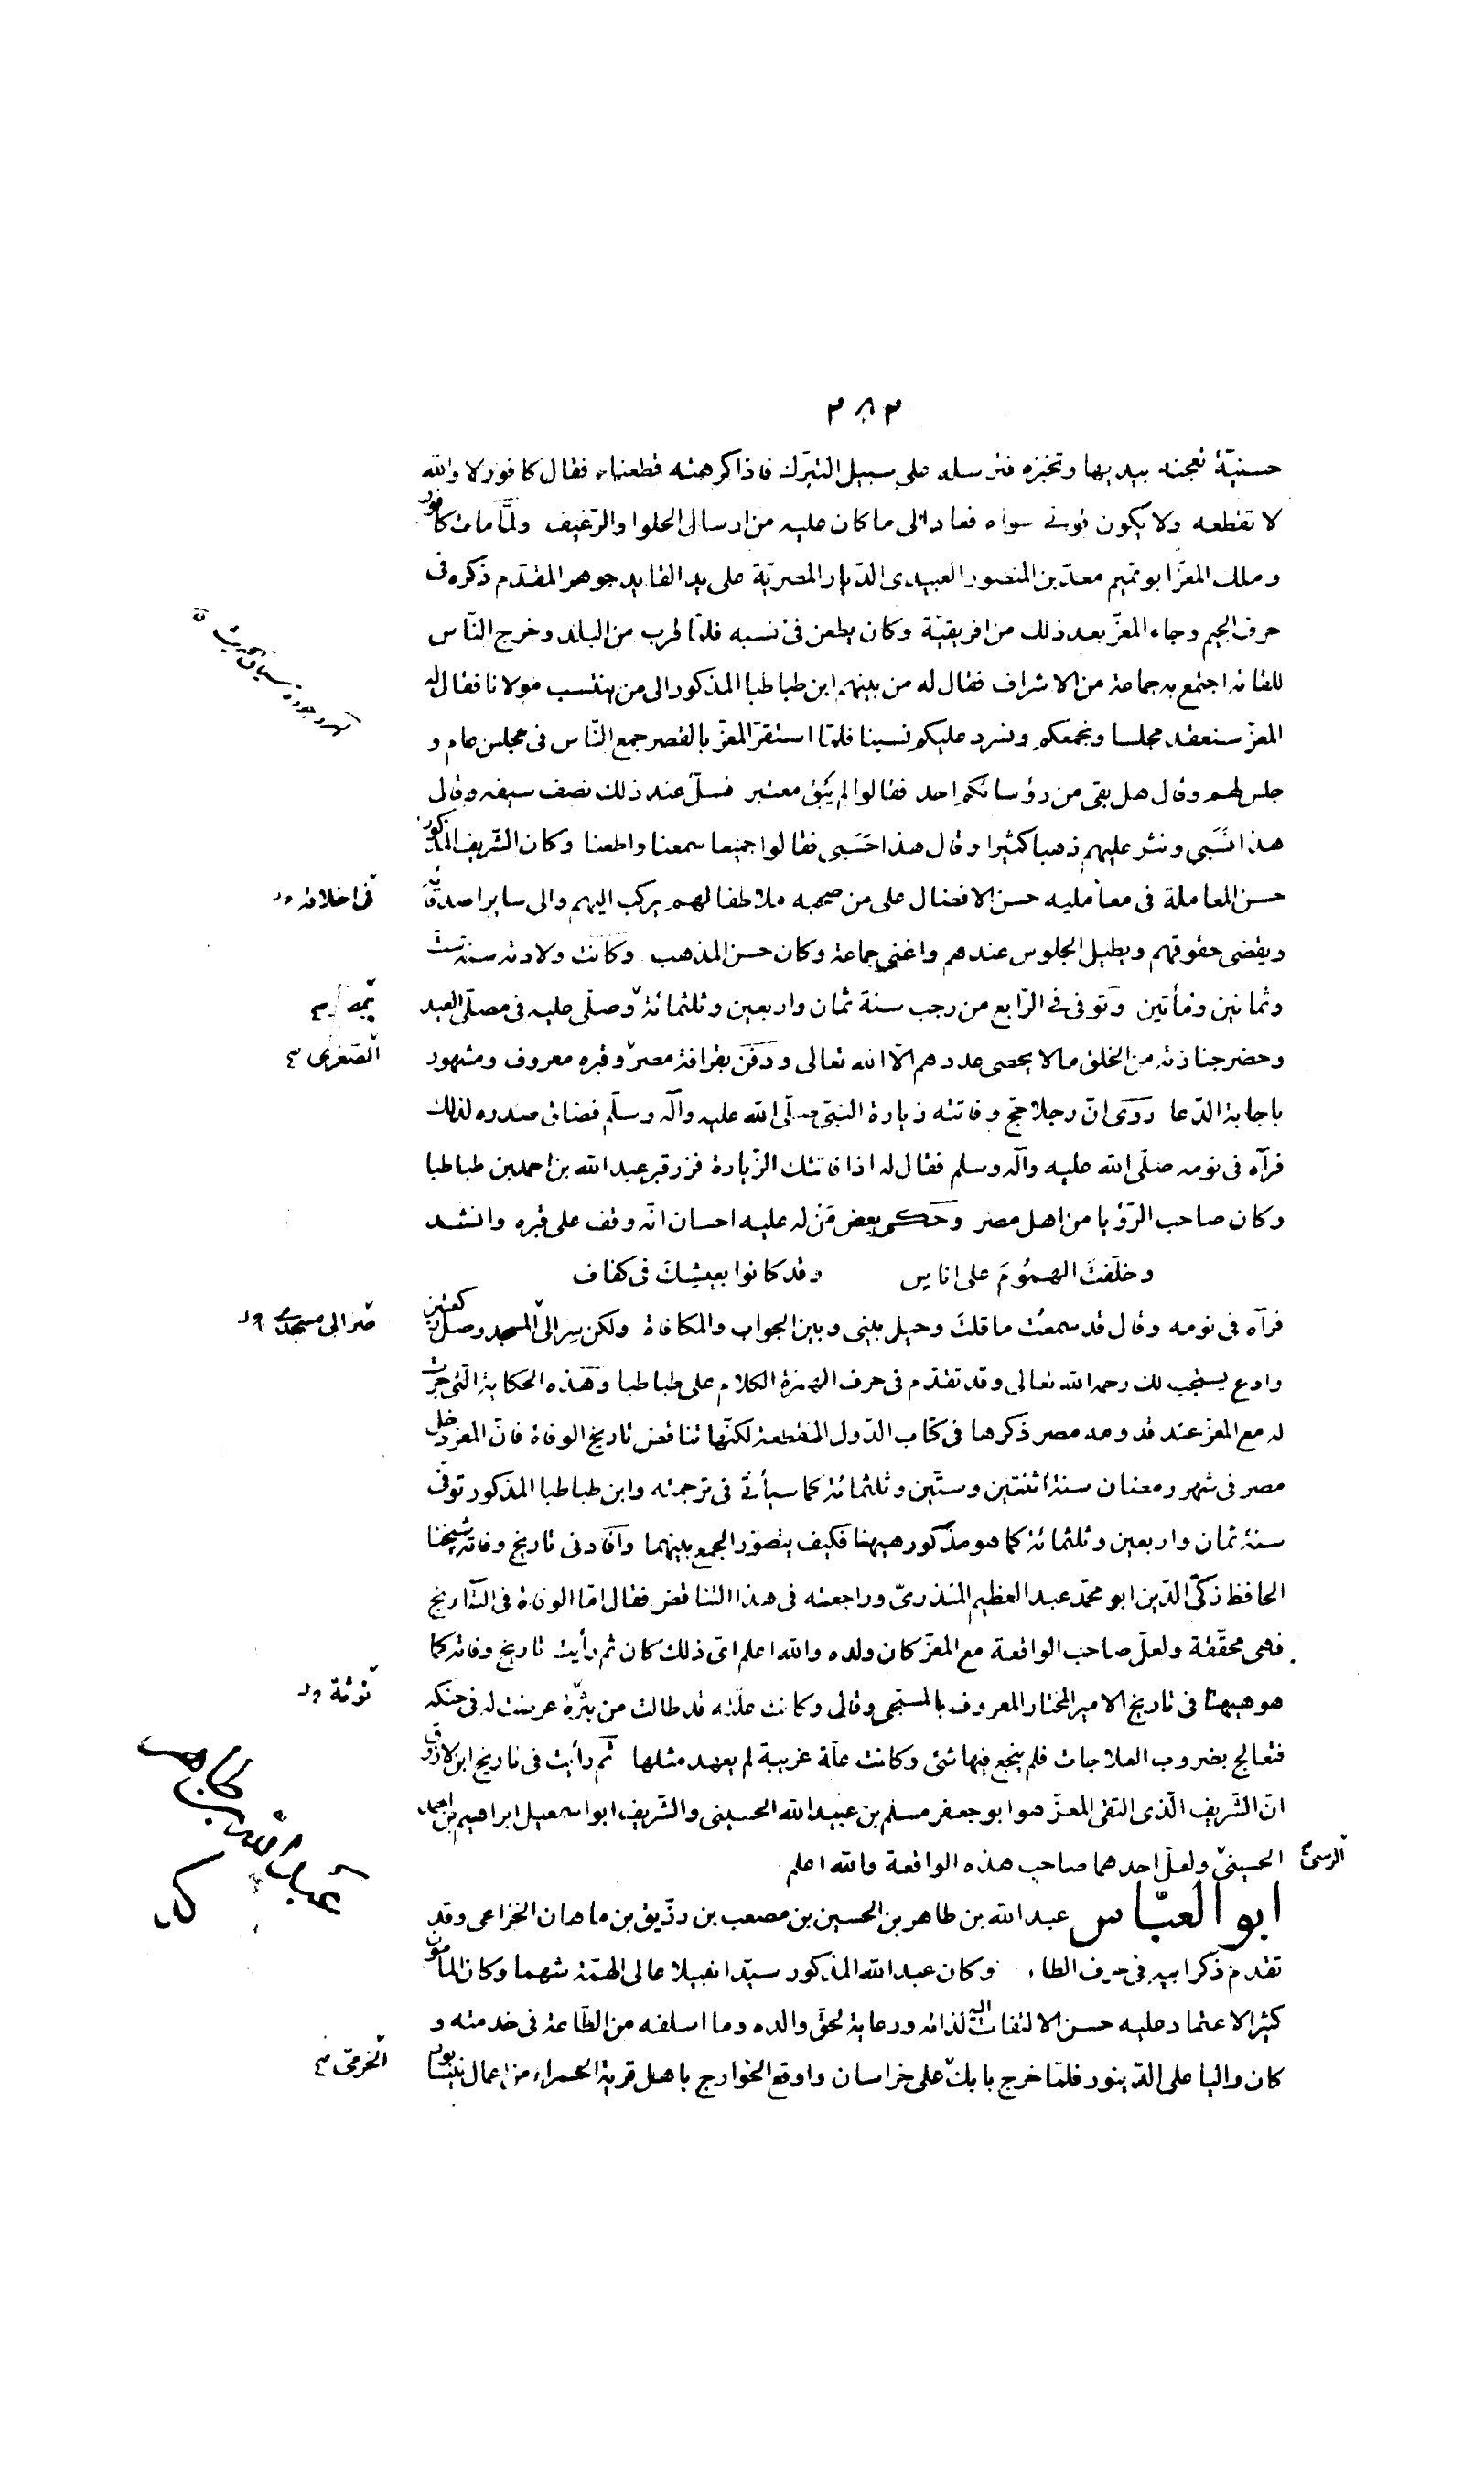 ٢٨٢
حسنيّة تعجنه بيديها وتخبزه فنرسله على سبيل التبرّك فاذا كرهته قطعناه فقال كافور لا والله
لا تقطعه ولا يكون قوتي سواه فعاد الى ما كان عليه من ارسال الحلوا والرّغيف ولمّا مات كافور
وملك المعزّ ابو تميم معدّ بن المنصور العبيدى الدّيار المصريّة على يد القايد جوهر المقدّم ذكره فى
حرف الجيم وجاء المعزّ بعد ذلك من افريقيّة وكان يطعن فى نسبه فلمّا قرب من البلد وخرج النّاس
للقائه اجتمع به جماعة من الاشراف فقال له من بينهم ابن طباطبا المذكور الى من ينتسب مولانا فقال له
المعزّ سنعقد مجلسا ونجمعكم ونسرد عليكم نسبنا فلمّا استقرّ المعزّ بالقصر جمع النّاس فى مجلس عام و
جلس لهم وقال هل بقى من رؤسائكم احد فقالوا لم يَبْق معتبر فسلّ عند ذلك نصف سيفه وقال
هذا نَسَبى ونثر عليهم ذهبا كثيرا وقال هذا حَسَبى فقالوا جميعا سمعنا واطعنا وكان الشّريف المذكور
حسن المعاملة فى معامليه حسن الافضال على من صحبه ملاطفا لهم يركب اليهم والى ساير اصدقائه
فى اخلاقه
ويقضى حقوقهم ويطيل الجلوس عندهم واغنى جماعة وكان حسن المذهب وكانت ولادته سنة ستّ
وثمانين ومأتين وتوفى فى الرّابع من رجب سنة ثمان واربعين وثلثمائة وصلّى عليه فى مصلّى العيد
بمصر
وحضر جنازته من الخلق ما لا يحصى عددهم الّا الله تعالى ودفن بقرافة مصر وقبره معروف ومشهور
الصّغرى
باجابة الدّعا روى انّ رجلا حجّ وفاتته زيارة النبىّ صلّى الله عليه وآله وسلّم فضاق صدره لذلك
فرآه فى نومه صلّى الله عليه وآله وسلم فقال له اذا فاتتك الزّيارة فزر قبر عبد الله بن احمد بن طباطبا
وكان صاحب الرّؤيا من اهل مصر وحكى بعض مَنْ له عليه احسان انّه وقف على قبره وانشد
وخلّفتَ الهمُومَ على اناسٍ وقد كانوا بعيشِكَ فى كفاف
فرآه فى نومه وقال قد سمعتُ ما قلتَ وحيل بينى وبين الجواب والمكافاة ولكن سِر الى المسجد وصلّ ركعتين
الى مسجدى
وادع يستجب لك رحمه الله تعالى وقد تقدّم فى حرف الهمزة الكلام على طباطبا وهذه الحكاية الّتى جرت
له مع المعزّ عند قدومه مصر ذكرها فى كتاب الدّول المنقطعة لكنّها تناقض تاريخ الوفاة فانّ المعزّ دخل
مصر فى شهر رمضان سنة اثنتين وستّين وثلثمائة كما سيأتى فى ترجمته وابن طباطبا المذكور توفى
سنة ثمان واربعين وثلثمائة كما هو مذكور هيهنا فكيف يتصوّر الجمع بينهما وآفادنى تاريخ وفاته شيخنا
الحافظ زكىّ الدّين ابو محمّد عبد العظيم المنذرىّ وراجعته فى هذا التناقض فقال امّا الوفاة فى التّاريخ
فهى محقّقة ولعلّ صاحب الواقعة مع المعزّ كان ولده والله اعلم اىّ ذلك كان ثم رأيت تاريخ وفاته كما
هو هيهنا فى تاريخ الامير المختار المعروف بالمسبّحى وقال وكانت علّته قد طالت من بثرة عرضت له فى حنكه
توثة
فتعالج بضروب العلاجات فلم ينجع فيها شئ وكانت علّة غريبة لم يعهد مثلها ثمّ رأيت فى تاريخ ابن لازروق
انّ الشّريف الّذى التقى المعزّ هو ابو جعفر مسلم بن عبيد الله الحسينى والشّريف ابو اسمعيل ابراهيم بن احمد
الحسينىّ ولعلّ احدهما صاحب هذه الواقعة والله اعلم
الرسىّ
ابو العبّاس عبد الله بن طاهر بن الحسين بن مصعب بن رزّيق بن ماهان الخزاعى وقد
عبد الله بن طاهر
تقدم ذكر ابيه فى حرف الطاء وكان عبد الله المذكور سيّدا نبيلا عالى الهمّة شهما وكان المأمون
كثير الاعتماد عليه حسن الالتفات اليه لذاته ورعاية لحقّ والده وما اسلفه من الطّاعة فى خدمته و
كان واليا على الدّينور فلمّا خرج بابك على خراسان واوقع الخوارج باهل قرية الحمراء من اعمال نيسابور
الخرمى